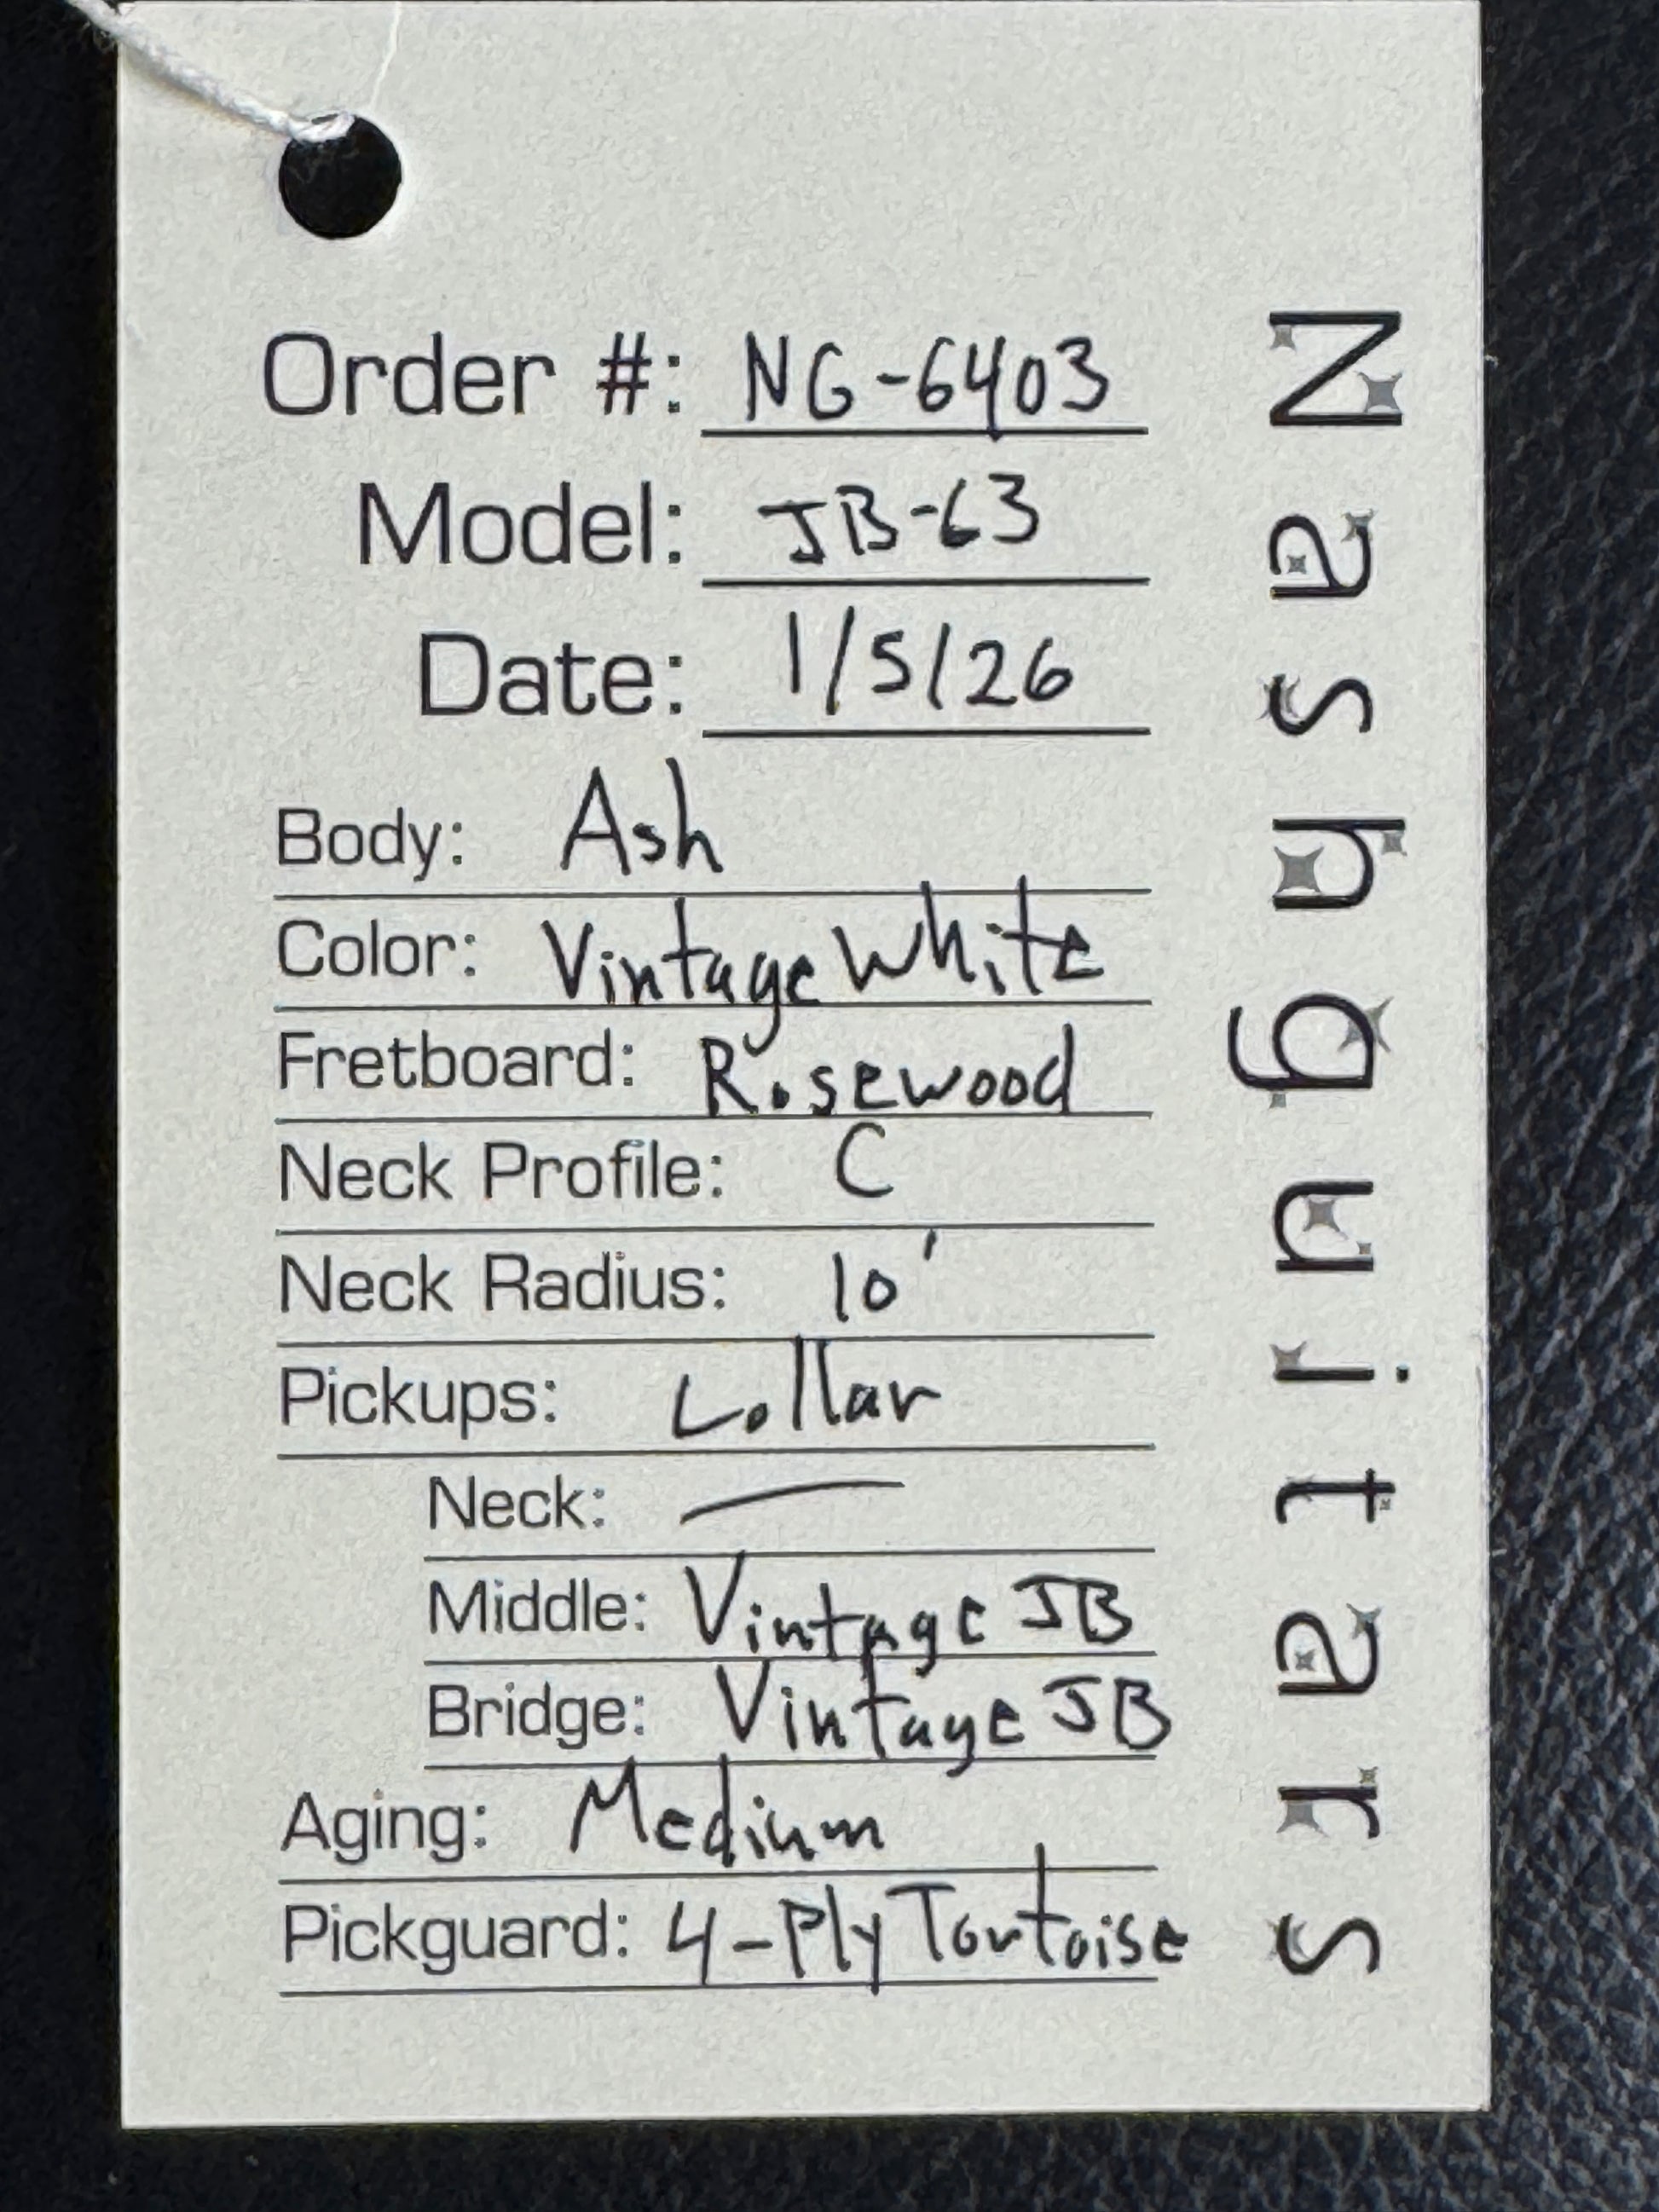 Order #: NG-6403
Model: JB-63
Date: 1/5/26
Body: Ash
Color: Vintage White
Fretboard: Rosewood
Neck Profile: C
Neck Radius: 10'
Pickups: Lollar
Neck: —
Middle: Vintage JB
Bridge: Vintage JB
Aging: Medium
Pickguard: 4-Ply Tortoise
Nashguitars